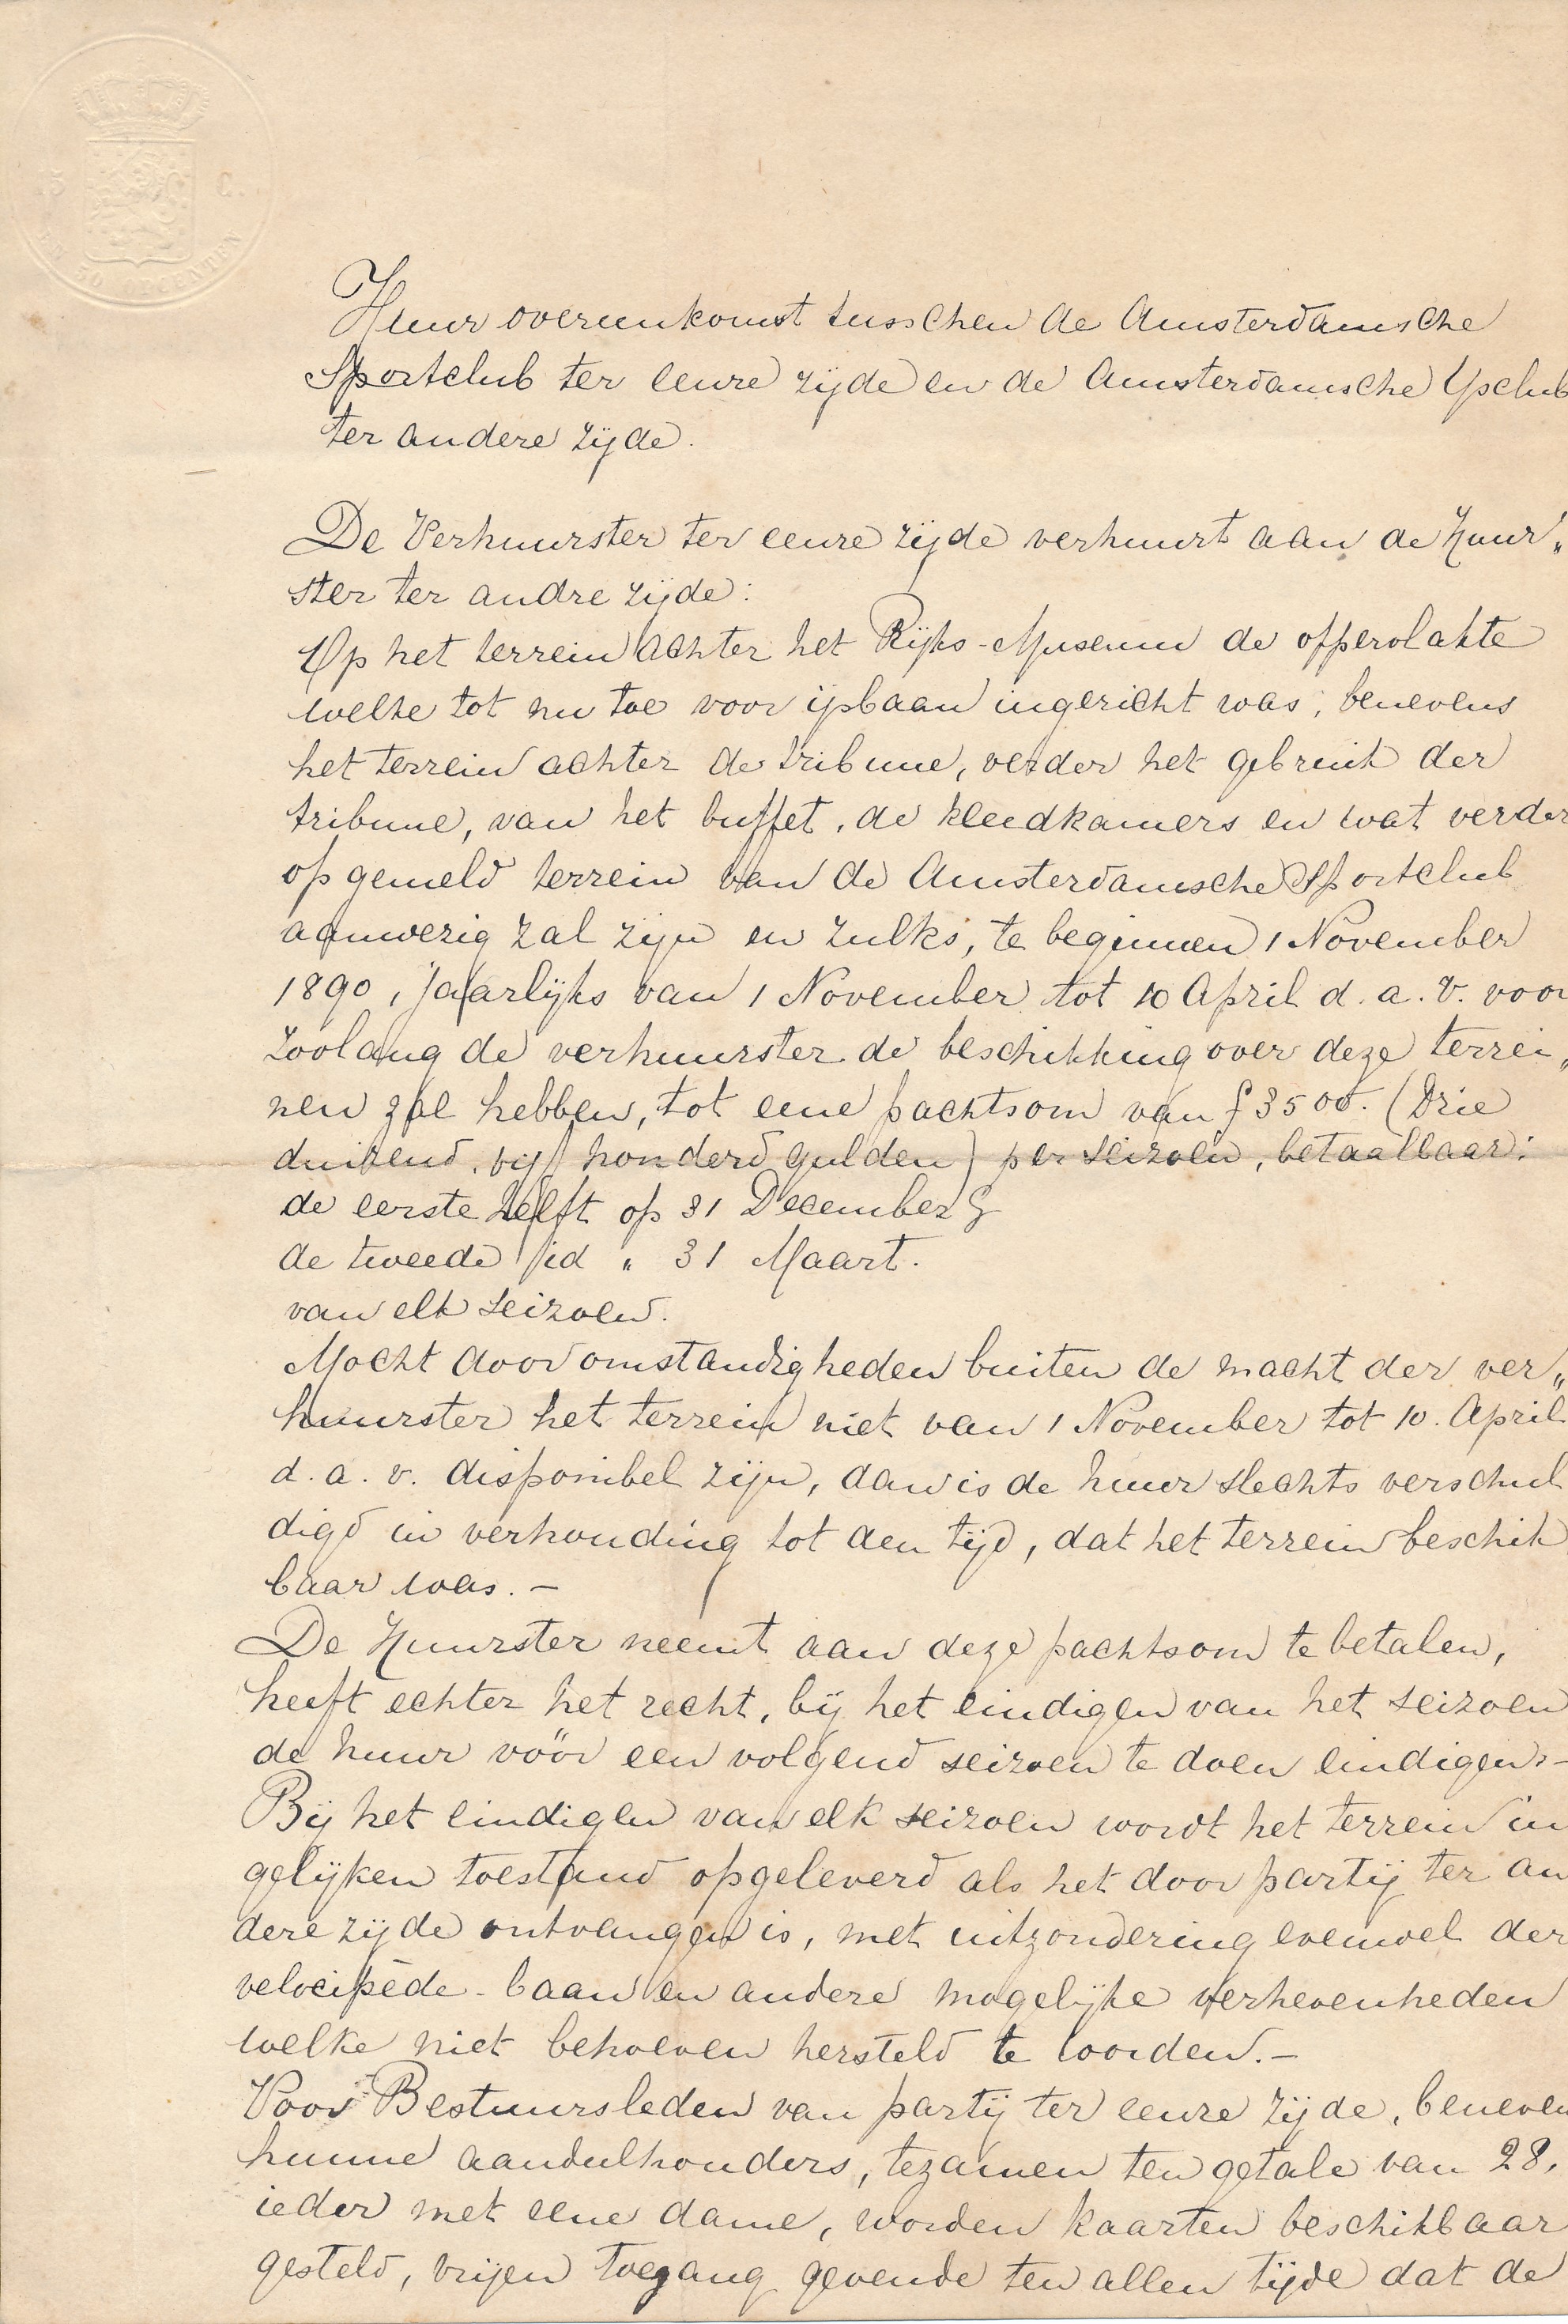 5 C.
EN 50 OPCENTEN
Huur overeenkomst tusschen de Amsterdamsche
Sportclub ter eenre zijde en de Amsterdamsche Ysclub
ter andere zijde.
De Verhuurster ter eenre zijde verhuurt aan de Huur„
ster ter andre zijde:
Op het terrein achter het Rijks-Museum de oppervlakte
welke tot nu toe voor ijsbaan ingericht was, benevens
het terrein achter de tribune, verder het gebruik der
tribune, van het buffet, de kleedkamers en wat verder
op gemeld terrein van de Amsterdamsche Sportclub
aanwezig zal zijn en zulks, te beginnen 1 November
1890, jaarlijks van 1 November tot 10 April d. a. v. voor
zoolang de verhuurster de beschikking over deze terrei„
nen zal hebben, tot eene pachtsom van f 3500. (Drie
duizend vijf honderd gulden) per seizoen, betaalbaar:
de eerste helft op 31 December &
de tweede id „ 31 Maart.
van elk seizoen.
Mocht door omstandigheden buiten de macht der ver„
huurster het terrein niet van 1 November tot 10. April
d. a. v. disponibel zijn, dan is de huur slechts verschul
digd in verhouding tot den tijd, dat het terrein beschik
baar was. –
De Huurster neemt aan deze pachtsom te betalen,
heeft echter het recht, bij het eindigen van het seizoen
de huur vóór een volgend seizoen te doen eindigen. –
Bij het eindigen van elk seizoen wordt het terrein in
gelijken toestand opgeleverd als het door partij ter an
dere zijde ontvangen is, met uitzondering evenwel der
velocipède-baan en andere mogelijke verhevenheden
welke niet behoeven hersteld te worden. –
Voor Bestuursleden van partij ter eenre zijde, beneven
hunne aandeelhouders, tezamen ten getale van 28,
ieder met eene dame, worden kaarten beschikbaar
gesteld, vrijen toegang gevende ten allen tijde dat de